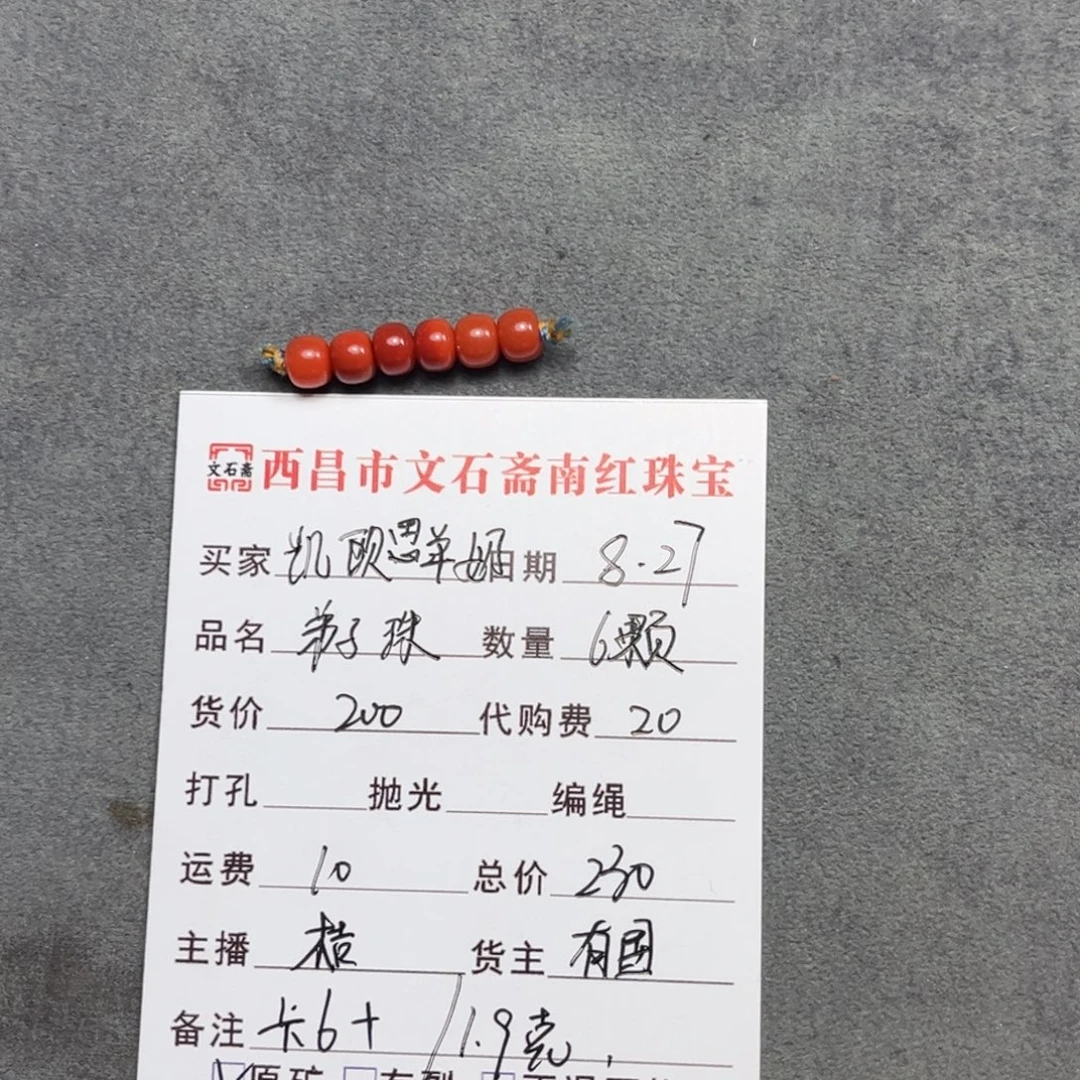 文石斋 西昌市文石斋南红珠宝
买家 凯欧 日期 8.27
品名 弟子珠 数量 6颗
货价 200 代购费 20
打孔 抛光 编绳
运费 10 总价 230
主播 桔 货主 有国
备注 卡6+ / 1.9克
原矿 有裂